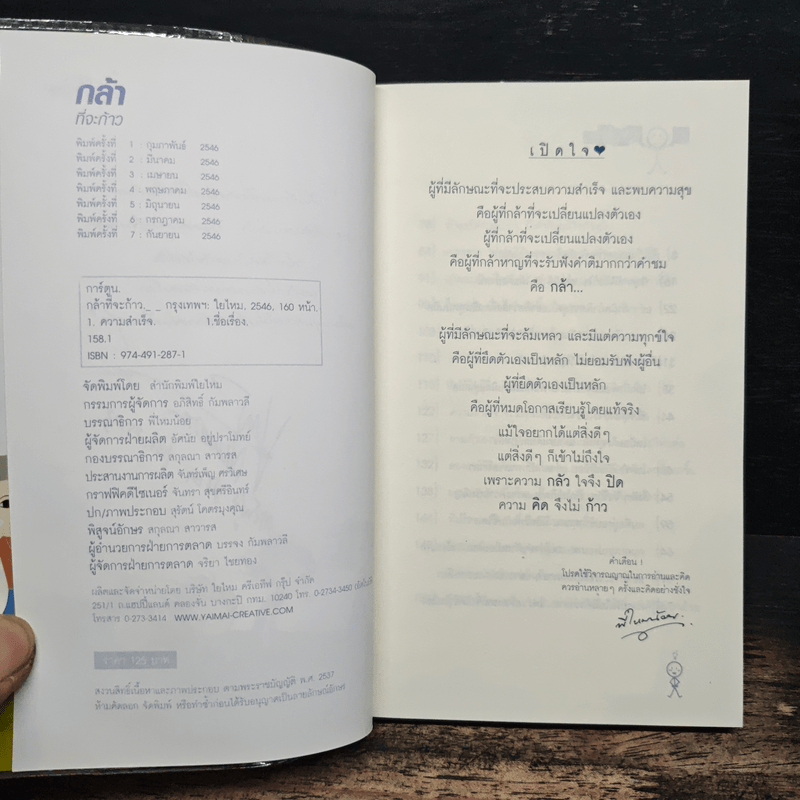 กล้า
ที่จะก้าว
พิมพ์ครั้งที่ 1 : กุมภาพันธ์ 2546
พิมพ์ครั้งที่ 2 : มีนาคม 2546
พิมพ์ครั้งที่ 3 : เมษายน 2546
พิมพ์ครั้งที่ 4 : พฤษภาคม 2546
พิมพ์ครั้งที่ 5 : มิถุนายน 2546
พิมพ์ครั้งที่ 6 : กรกฎาคม 2546
พิมพ์ครั้งที่ 7 : กันยายน 2546
การ์ตูน.
กล้าที่จะก้าว._ _ กรุงเทพฯ: ใยไหม, 2546, 160 หน้า.
1. ความสำเร็จ. 1.ชื่อเรื่อง.
158.1
ISBN : 974-491-287-1
จัดพิมพ์โดย สำนักพิมพ์ใยไหม
กรรมการผู้จัดการ อภิสิทธิ์ กัมพลาวลี
บรรณาธิการ พี่ไหมน้อย
ผู้จัดการฝ่ายผลิต อัศนัย อยู่ปราโมทย์
กองบรรณาธิการ สกุลณา สาวารส
ประสานงานการผลิต จันทร์เพ็ญ ศรวิเศษ
กราฟฟิคดีไซเนอร์ จันทรา สุขศรีอินทร์
ปก/ภาพประกอบ สุรัตน์ โคตรมุงคุณ
พิสูจน์อักษร สกุลณา สาวารส
ผู้อำนวยการฝ่ายการตลาด บรรจง กัมพลาวลี
ผู้จัดการฝ่ายการตลาด จริยา ไชยทอง
ผลิตและจัดจำหน่ายโดย บริษัท ใยไหม ครีเอทีฟ กรุ๊ป จำกัด
251/1 ถ.แฮปปี้แลนด์ คลองจั่น บางกะปิ กทม. 10240 โทร. 0-2734-3450
โทรสาร 0-273-3414 WWW.YAIMAI-CREATIVE.COM
ราคา 125 บาท
สงวนสิทธิ์เนื้อหาและภาพประกอบ ตามพระราชบัญญัติ พ.ศ. 2537
ห้ามคัดลอก จัดพิมพ์ หรือทำซ้ำก่อนได้รับอนุญาตเป็นลายลักษณ์อักษร
เปิดใจ
ผู้ที่มีลักษณะที่จะประสบความสำเร็จ และพบความสุข
คือผู้ที่กล้าที่จะเปลี่ยนแปลงตัวเอง
ผู้ที่กล้าที่จะเปลี่ยนแปลงตัวเอง
คือผู้ที่กล้าหาญที่จะรับฟังคำติมากกว่าคำชม
คือ กล้า...
ผู้ที่มีลักษณะที่จะล้มเหลว และมีแต่ความทุกข์ใจ
คือผู้ที่ยึดตัวเองเป็นหลัก ไม่ยอมรับฟังผู้อื่น
ผู้ที่ยึดตัวเองเป็นหลัก
คือผู้ที่หมดโอกาสเรียนรู้โดยแท้จริง
แม้ใจอยากได้แต่สิ่งดีๆ
แต่สิ่งดีๆ ก็เข้าไม่ถึงใจ
เพราะความ กลัว ใจจึง ปิด
ความ คิด จึงไม่ ก้าว
คำเตือน !
โปรดใช้วิจารณญาณในการอ่านและคิด
ควรอ่านหลายๆ ครั้งและคิดอย่างชั่งใจ
พี่ไหมน้อย.